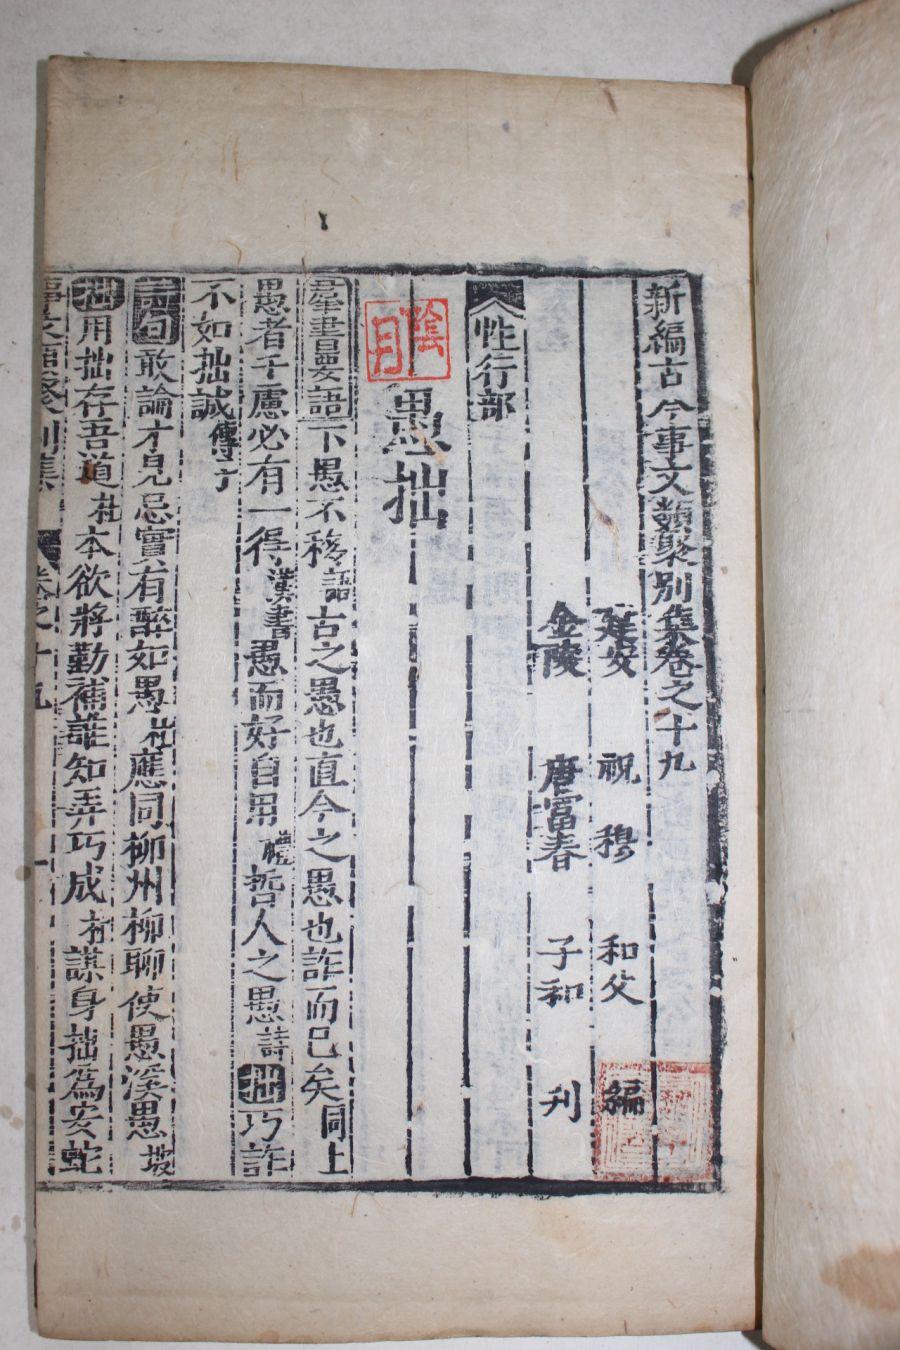 新編古今事文類聚別集卷之十九
建安 祝 穆 和父 編
金陵 唐富春 子和 刊
性行部
愚拙
陰月
群書要語下愚不移語古之愚也直今之愚也詐而已矣同上
愚者千慮必有一得漢書愚而好自用禮哲人之愚詩拙巧詐
不如拙誠傳子
詩句敢論才見忌實有醉如愚杜應同柳州柳聊使愚溪愚坡
拙用拙存吾道杜本欲將勤補誰知弄巧成村謀身拙為安蛇
卷之十九